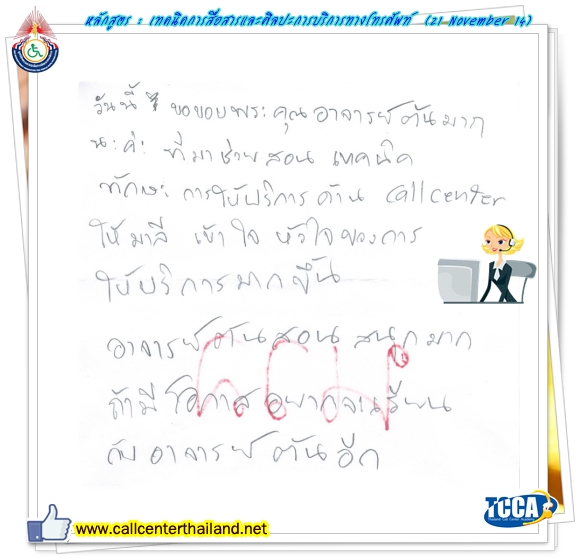 หลักสูตร : เทคนิคการสื่อสารและศิลปะการบริการทางโทรศัพท์ (21 November 14)
วันนี้ ขอขอบพระคุณอาจารย์ตันมาก
นะค่ะ ที่มาช่วยสอน เทคนิค
ทักษะ การให้บริการด้าน Call center
ให้มาลี เข้าใจ หัวใจของการ
ให้บริการมากขึ้น
อาจารย์ตันสอนสนุกมาก
ถ้ามีโอกาสอยากจะเรียน
กับอาจารย์ตันอีก
TCCA
www.callcenterthailand.net